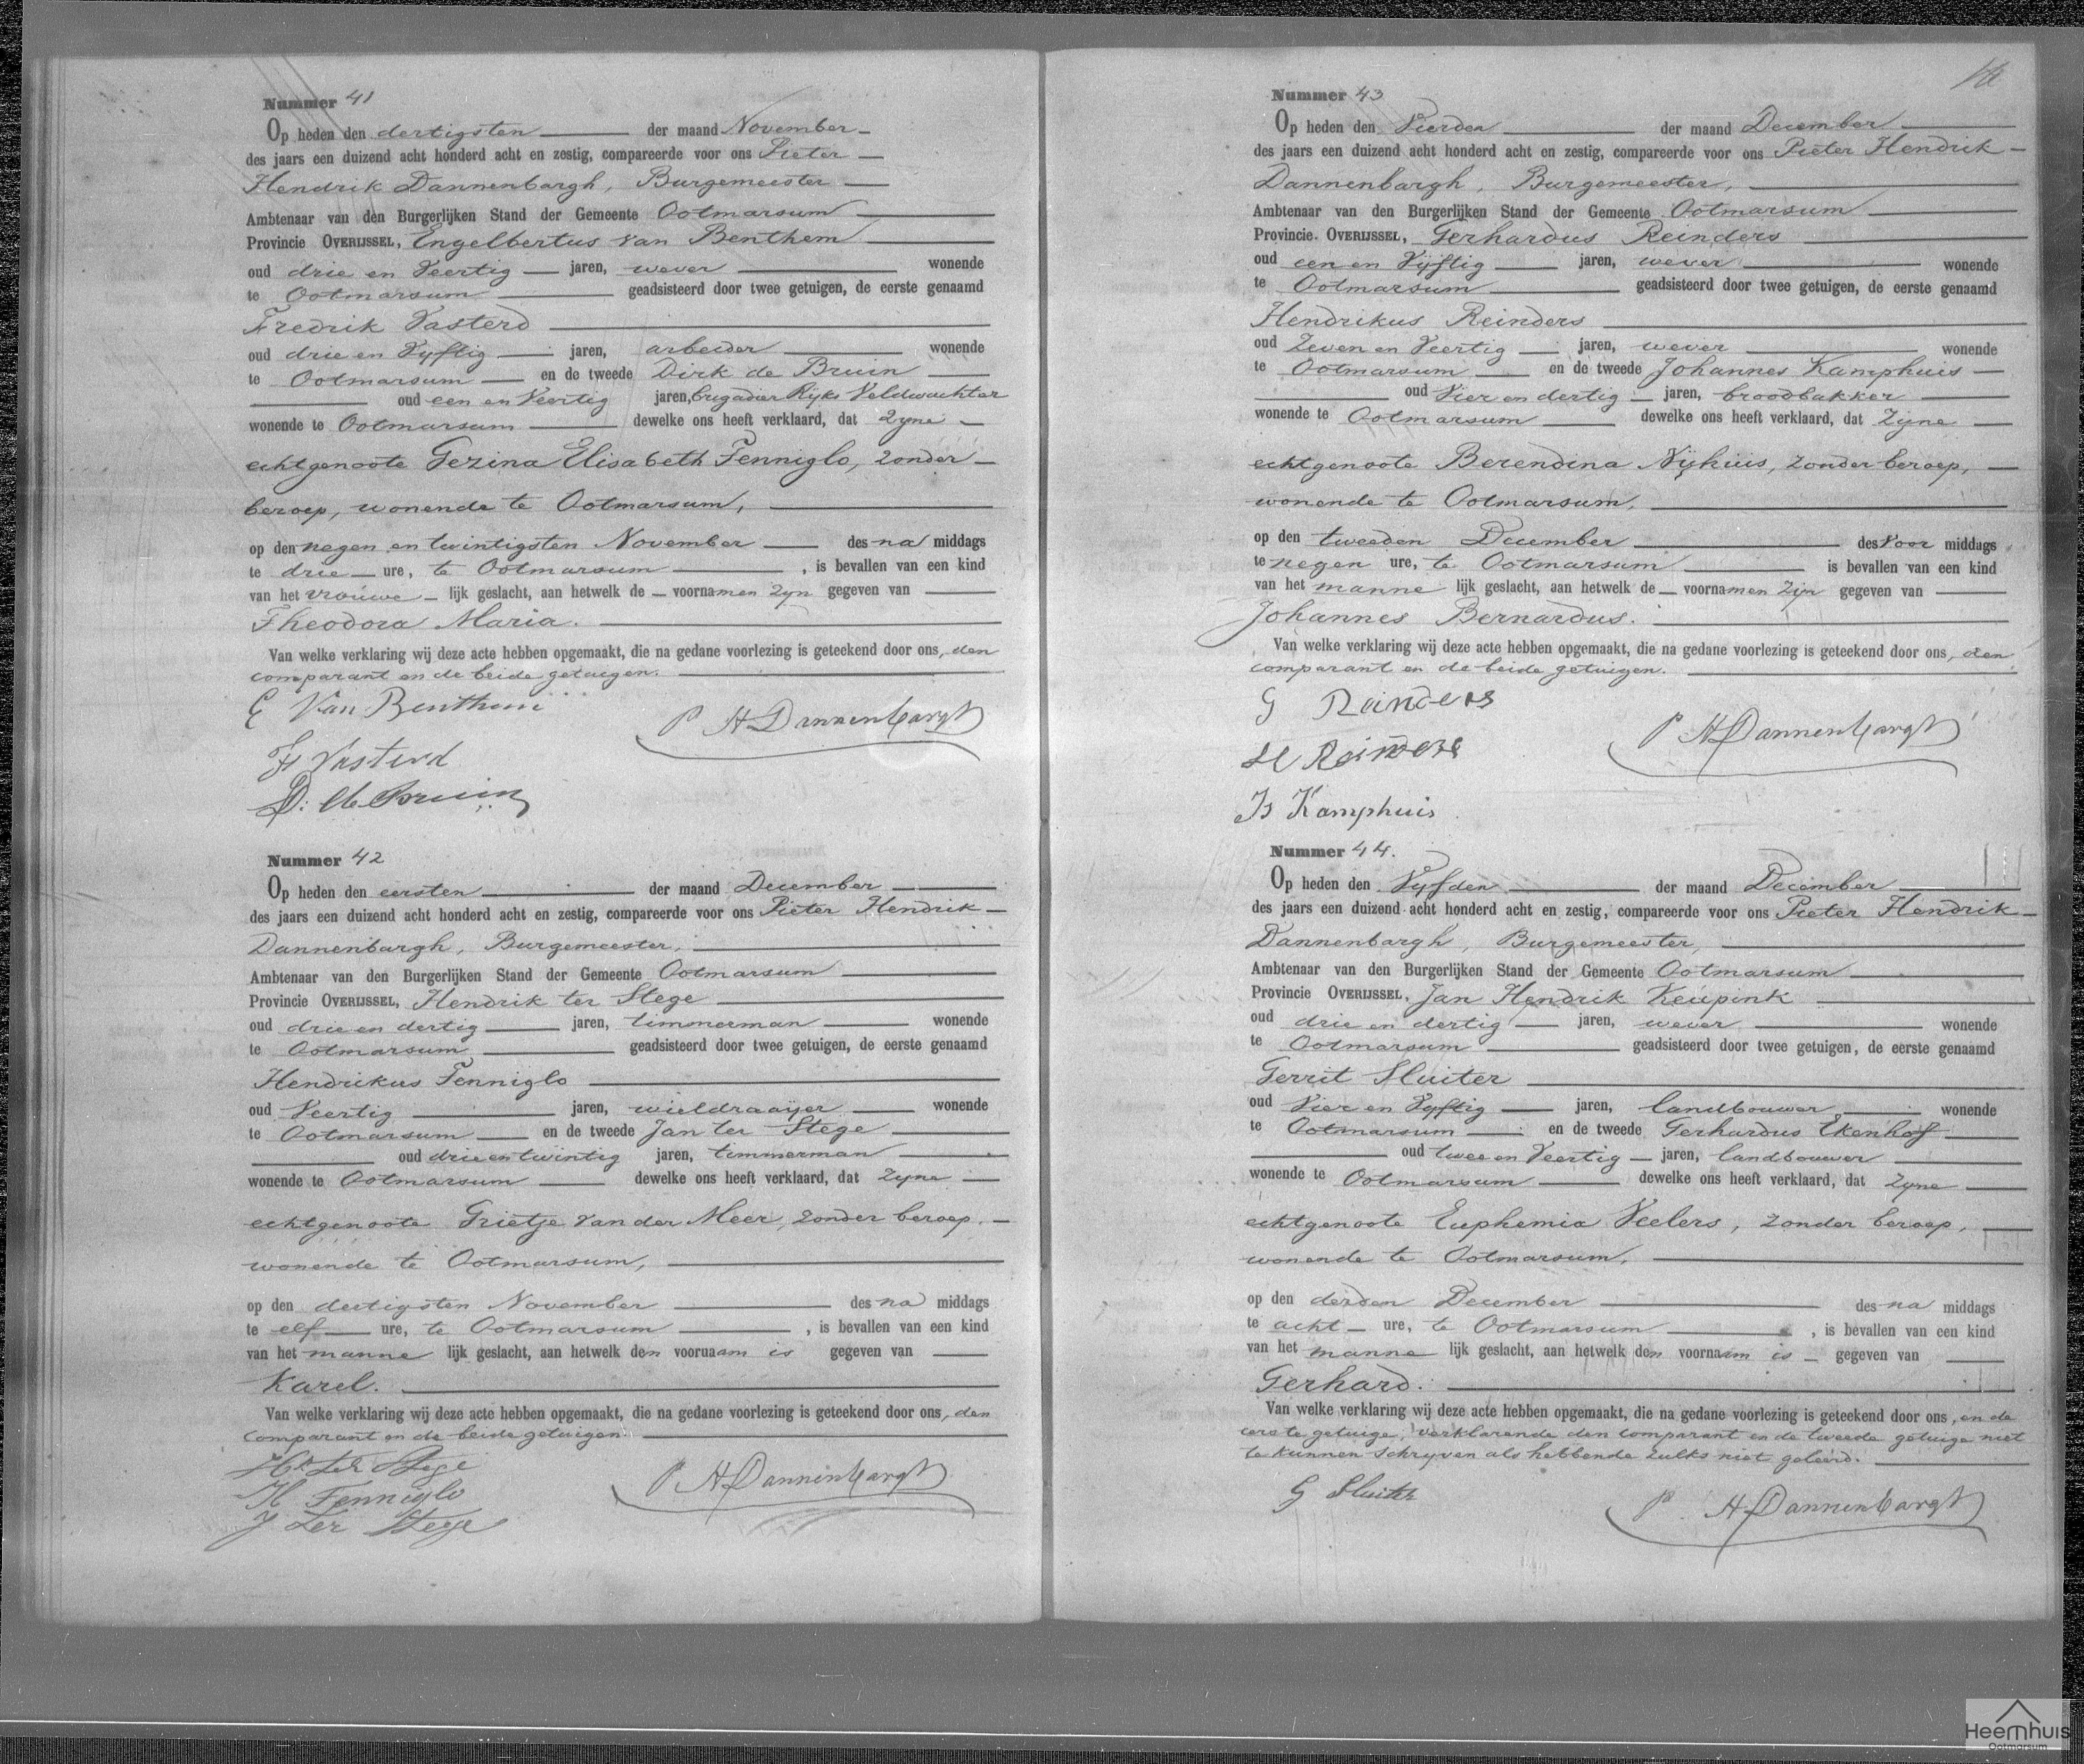 Nummer 41
Op heden den dertigsten der maand November
des jaars een duizend acht honderd acht en zestig, compareerde voor ons Pieter
Hendrik Dannenbargh, Burgemeester
Ambtenaar van den Burgerlijken Stand der Gemeente Ootmarsum
Provincie OVERIJSSEL, Engelbertus van Benthem
oud drie en Veertig jaren, wever wonende
te Ootmarsum geadsisteerd door twee getuigen, de eerste genaamd
Fredrik Vasterd
oud drie en Vyftig jaren, arbeider wonende
te Ootmarsum en de tweede Dirk de Bruin
oud een en Veertig jaren, brigadier Rijks Veldwachter
wonende te Ootmarsum dewelke ons heeft verklaard, dat Zyne
echtgenoote Gezina Elisabeth Fenniglo, zonder
beroep, wonende te Ootmarsum,
op den negen en twintigsten November des na middags
te drie ure, te Ootmarsum, is bevallen van een kind
van het vrouwe lijk geslacht, aan hetwelk de voornamen zyn gegeven van
Theodora Maria.
Van welke verklaring wij deze acte hebben opgemaakt, die na gedane voorlezing is geteekend door ons, den
comparant en de beide getuigen.
E Van Benthem
P H Dannenbargh
F Vasterd
D: de Bruin
Nummer 42
Op heden den eersten der maand December
des jaars een duizend acht honderd acht en zestig, compareerde voor ons Pieter Hendrik
Dannenbargh, Burgemeester,
Ambtenaar van den Burgerlijken Stand der Gemeente Ootmarsum
Provincie OVERIJSSEL, Hendrik ter Stege
oud drie en dertig jaren, timmerman wonende
te Ootmarsum geadsisteerd door twee getuigen, de eerste genaamd
Hendrikus Fenniglo
oud Veertig jaren, wieldraaijer wonende
te Ootmarsum en de tweede Jan ter Stege
oud drie en twintig jaren, timmerman
wonende te Ootmarsum dewelke ons heeft verklaard, dat Zyne
echtgenoote Grietje van der Meer, zonder beroep,
wonende te Ootmarsum,
op den dertigsten November des na middags
te elf ure, te Ootmarsum, is bevallen van een kind
van het manne lijk geslacht, aan hetwelk den voornaam is gegeven van
Karel.
Van welke verklaring wij deze acte hebben opgemaakt, die na gedane voorlezing is geteekend door ons, den
comparant en de beide getuigen.
Hk ter Stege
P H Dannenbargh
H Fenniglo
J ter Stege
Nummer 43
Op heden den Vierden der maand December
des jaars een duizend acht honderd acht en zestig, compareerde voor ons Pieter Hendrik
Dannenbargh, Burgemeester,
Ambtenaar van den Burgerlijken Stand der Gemeente Ootmarsum
Provincie OVERIJSSEL, Gerhardus Reinders
oud een en Vijftig jaren, wever wonende
te Ootmarsum geadsisteerd door twee getuigen, de eerste genaamd
Hendrikus Reinders
oud Zeven en Veertig jaren, wever wonende
te Ootmarsum en de tweede Johannes Kamphuis
oud Vier en dertig jaren, broodbakker
wonende te Ootmarsum dewelke ons heeft verklaard, dat Zijne
echtgenoote Berendina Nijhuis, zonder beroep,
wonende te Ootmarsum,
op den tweeden December des voor middags
te negen ure, te Ootmarsum is bevallen van een kind
van het manne lijk geslacht, aan hetwelk de voornamen zijn gegeven van
Johannes Bernardus.
Van welke verklaring wij deze acte hebben opgemaakt, die na gedane voorlezing is geteekend door ons, den
comparant en de beide getuigen.
G Reinders
P H Dannenbargh
H Reinders
Js Kamphuis
Nummer 44.
Op heden den Vyfden der maand December
des jaars een duizend acht honderd acht en zestig, compareerde voor ons Pieter Hendrik
Dannenbargh, Burgemeester,
Ambtenaar van den Burgerlijken Stand der Gemeente Ootmarsum
Provincie OVERIJSSEL, Jan Hendrik Keupink
oud drie en dertig jaren, wever wonende
te Ootmarsum geadsisteerd door twee getuigen, de eerste genaamd
Gerrit Sluiter
oud Vier en Vyftig jaren, landbouwer wonende
te Ootmarsum en de tweede Gerhardus Ekenhof
oud twee en Veertig jaren, landbouwer
wonende te Ootmarsum dewelke ons heeft verklaard, dat Zyne
echtgenoote Euphemia Veelers, zonder beroep,
wonende te Ootmarsum,
op den derden December des na middags
te acht ure, te Ootmarsum, is bevallen van een kind
van het manne lijk geslacht, aan hetwelk den voornaam is gegeven van
Gerhard.
Van welke verklaring wij deze acte hebben opgemaakt, die na gedane voorlezing is geteekend door ons, en de
eerste getuige, verklarende den comparant en de tweede getuige niet
te kunnen schryven als hebbende zulks niet geleerd.
G Sluiter
P H Dannenbargh
Heemhuis
Ootmarsum